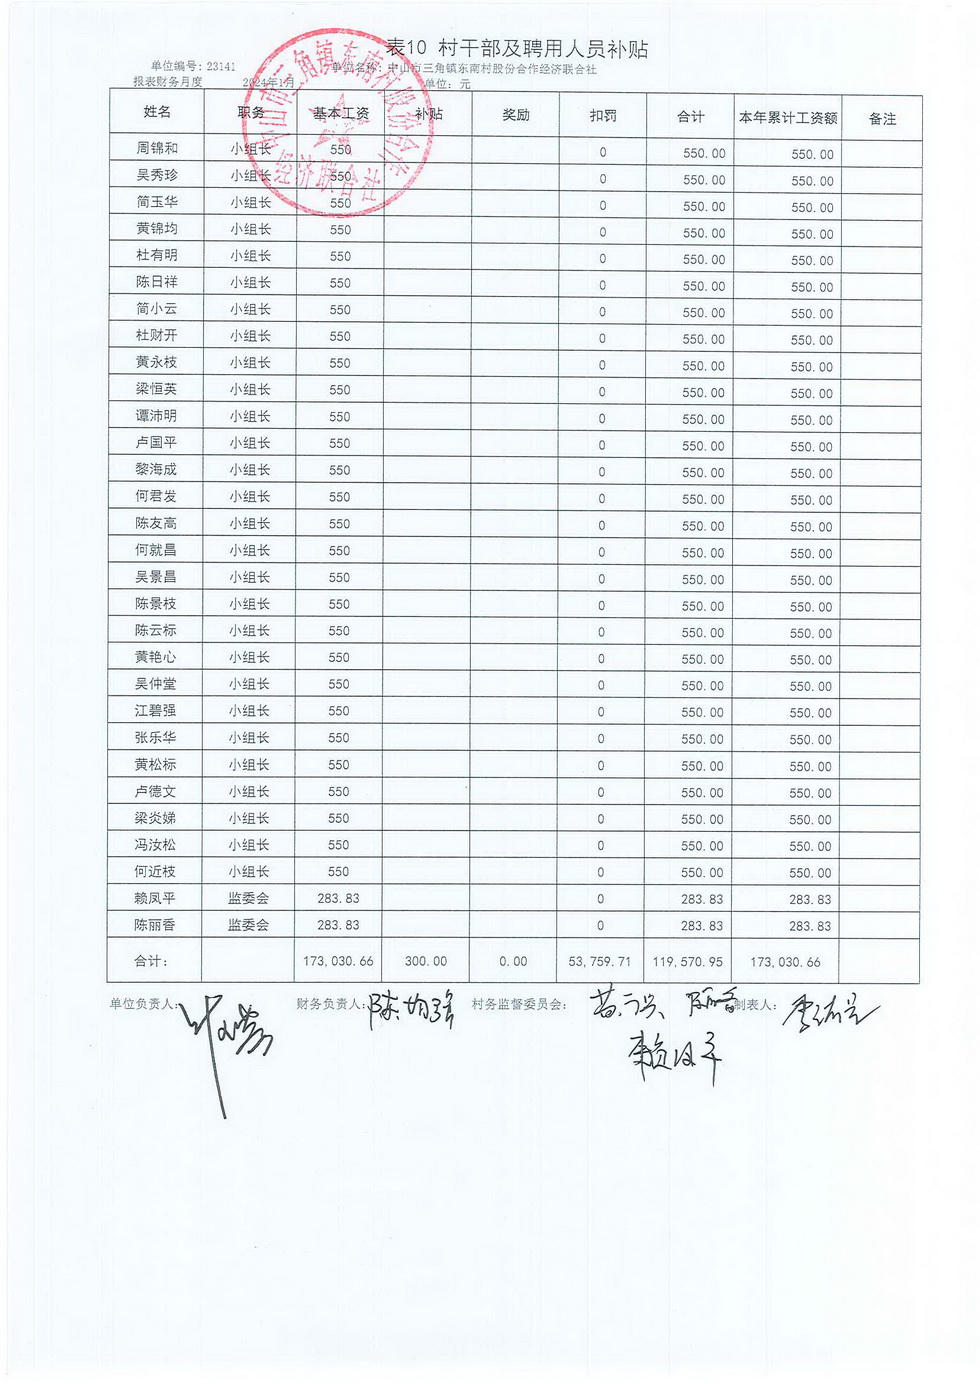 表10 村干部及聘用人员补贴
单位编号: 23141 单位名称: 中山市三角镇东南村股份合作经济联合社
报表财务月度 2024年1月 单位: 元
中山市三角镇东南村股份合作
经济联合社
姓名 职务 基本工资 补贴 奖励 扣罚 合计 本年累计工资额 备注
周锦和 小组长 550 0 550.00 550.00
吴秀珍 小组长 550 0 550.00 550.00
简玉华 小组长 550 0 550.00 550.00
黄锦均 小组长 550 0 550.00 550.00
杜有明 小组长 550 0 550.00 550.00
陈日祥 小组长 550 0 550.00 550.00
简小云 小组长 550 0 550.00 550.00
杜财开 小组长 550 0 550.00 550.00
黄永枝 小组长 550 0 550.00 550.00
梁恒英 小组长 550 0 550.00 550.00
谭沛明 小组长 550 0 550.00 550.00
卢国平 小组长 550 0 550.00 550.00
黎海成 小组长 550 0 550.00 550.00
何君发 小组长 550 0 550.00 550.00
陈友高 小组长 550 0 550.00 550.00
何就昌 小组长 550 0 550.00 550.00
吴景昌 小组长 550 0 550.00 550.00
陈景枝 小组长 550 0 550.00 550.00
陈云标 小组长 550 0 550.00 550.00
黄艳心 小组长 550 0 550.00 550.00
吴仲堂 小组长 550 0 550.00 550.00
江碧强 小组长 550 0 550.00 550.00
张乐华 小组长 550 0 550.00 550.00
黄松标 小组长 550 0 550.00 550.00
卢德文 小组长 550 0 550.00 550.00
梁炎娣 小组长 550 0 550.00 550.00
冯汝松 小组长 550 0 550.00 550.00
何近枝 小组长 550 0 550.00 550.00
赖凤平 监委会 283.83 0 283.83 283.83
陈丽香 监委会 283.83 0 283.83 283.83
合计: 173,030.66 300.00 0.00 53,759.71 119,570.95 173,030.66
单位负责人: 财务负责人: 村务监督委员会: 陈丽香 制表人:
赖凤平